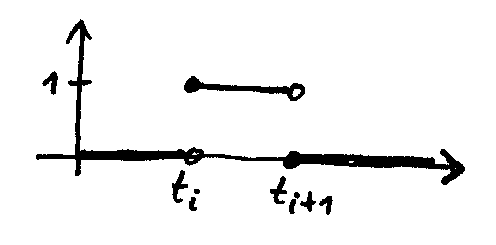 1
t_i t_{i+1}